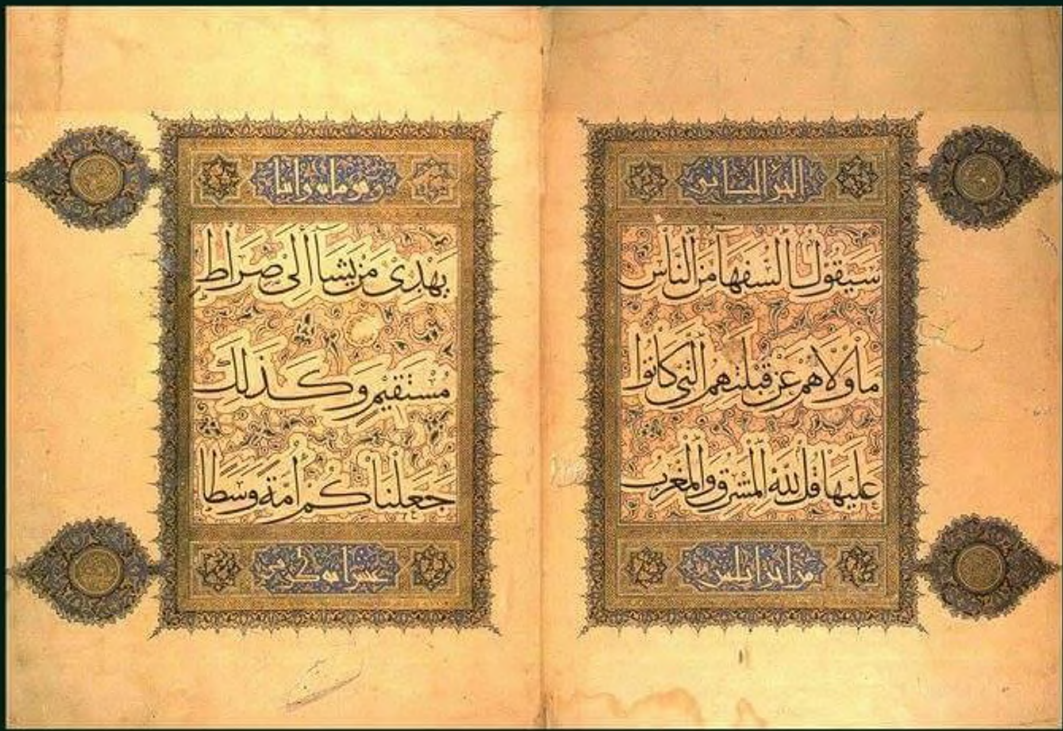 الجز الثاني
سَيَقُولُ السُّفَهَآ مِنَ النَّاسِ
مَا وَلَّاهُمْ عَنْ قِبْلَتِهِمُ الَّتِي كَانُوا
عَلَيْهَا قُلْ لِلَّهِ الْمَشْرِقُ وَالْمَغْرِبُ
من
وهو مايه واثنا
يَهْدِي مَنْ يَشَآ إِلَى صِرَاطٍ
مُسْتَقِيمٍ وَكَذَلِكَ
جَعَلْنَاكُمْ أُمَّةً وَسَطًا